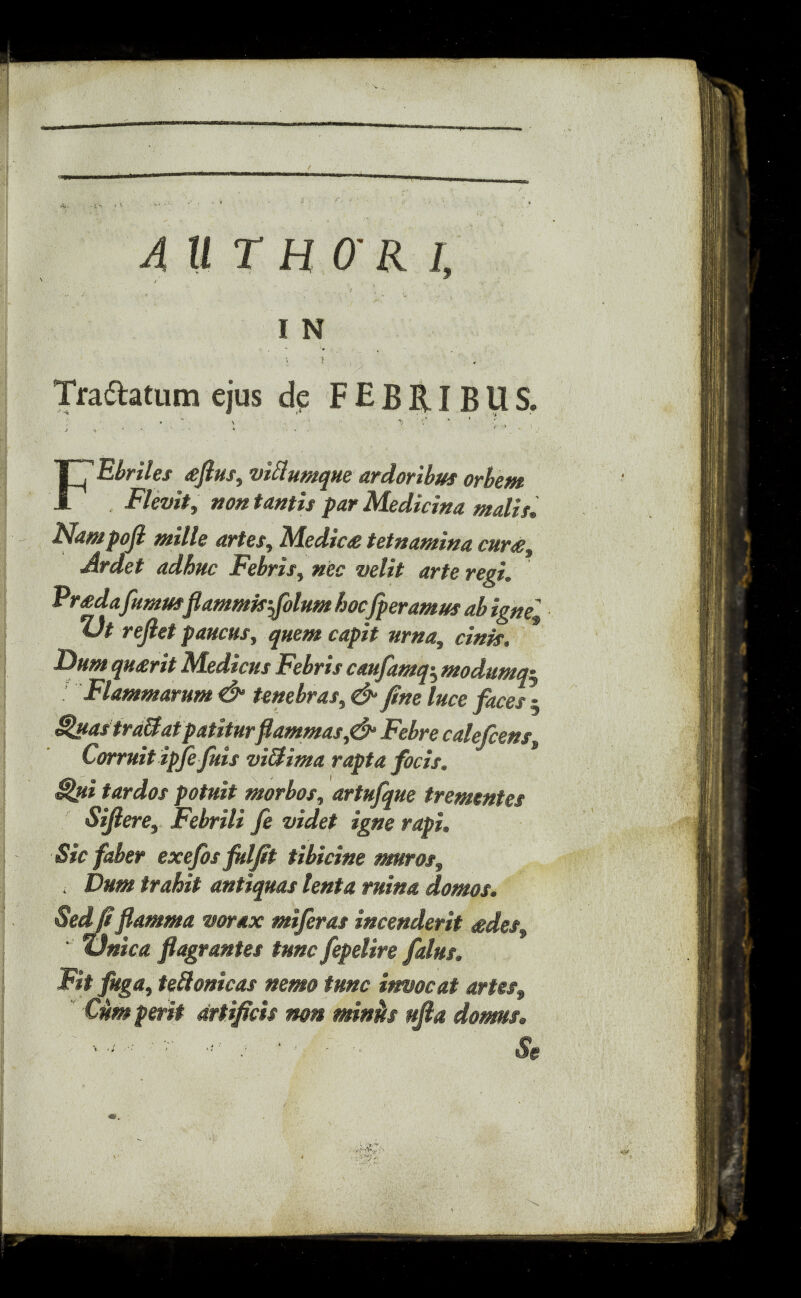 AUTHORI,
IN
Tractatum ejus de FEBRIBUS.
FEbriles æſtus, victumque ardoribus orbem
Flevit, non tantis par Medicina malis.
Nam poſt mille artes, Medicæ tetnamina curæ,
Ardet adhuc Febris, nec velit arte regi.
Præda ſumus flammis; ſolum hoc ſperamus ab igne,
Ut reſtet paucus, quem capit urna, cinis.
Dum quærit Medicus Febris cauſamq; modumq;
Flammarum & tenebras, & ſine luce faces;
Quas tractat patitur flammas, & Febre caleſcens,
Corruit ipſe ſuis victima rapta focis.
Qui tardos potuit morbos, artuſque trementes
Siſtere, Febrili ſe videt igne rapi.
Sic faber exeſos fulſit tibicine muros,
Dum trahit antiquas lenta ruina domos.
Sed ſi flamma vorax miſeras incenderit ædes,
Unica flagrantes tunc ſepelire ſalus.
Fit fuga, tectonicas nemo tunc invocat artes,
Cùm perit artificis non minùs uſta domus.
Se